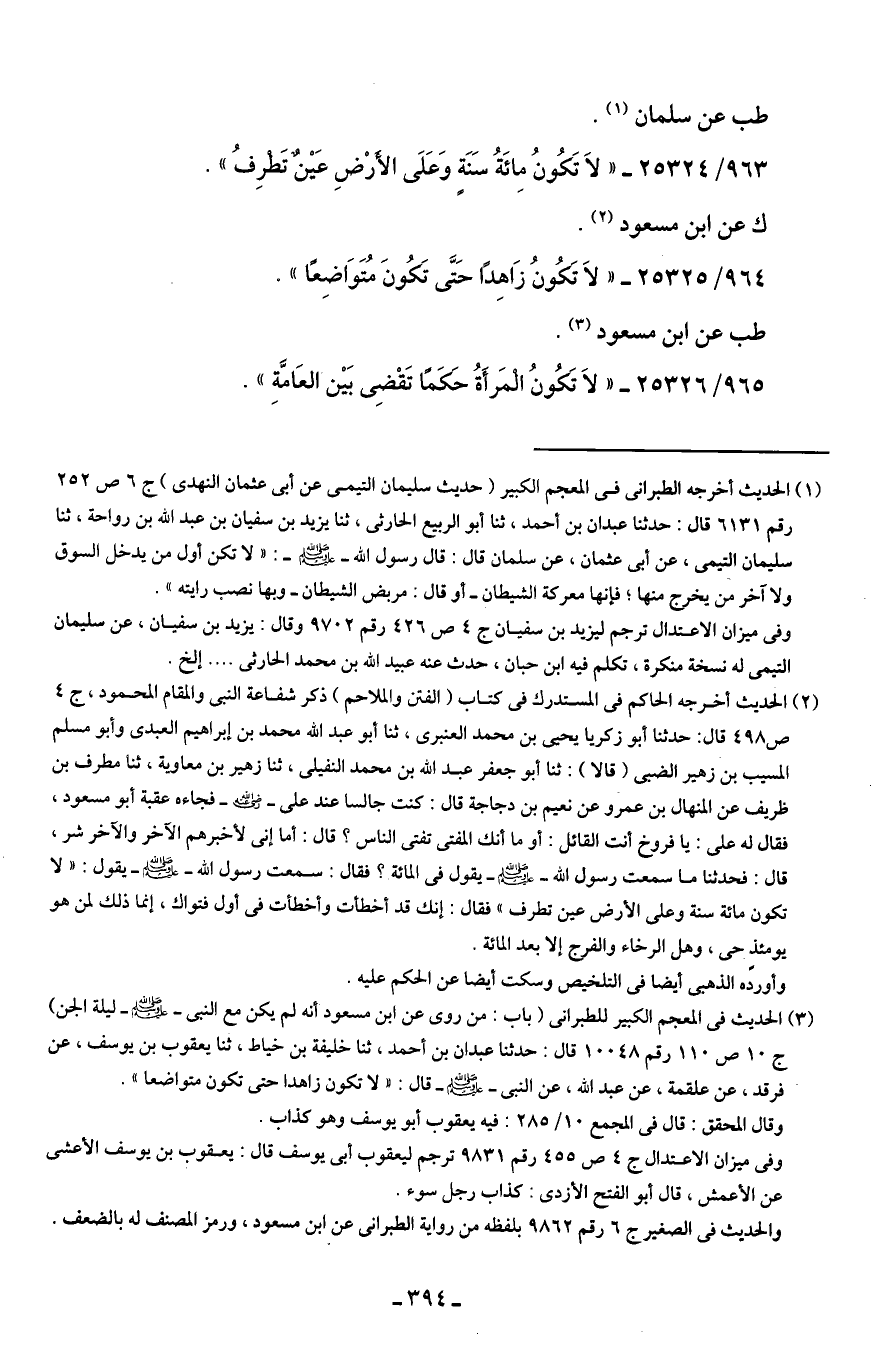 طب عن سلمان (١) .
٩٦٣/ ٢٥٣٢٤ ـ « لاَ تَكُونُ مِائَةُ سَنَةٍ وَعَلَى الأَرْضِ عَيْنٌ تَطْرِفُ » .
ك عن ابن مسعود (٢) .
٩٦٤/ ٢٥٣٢٥ ـ « لاَ تَكُونُ زَاهِدًا حَتَّى تَكُونَ مُتَوَاضِعًا » .
طب عن ابن مسعود (٣) .
٩٦٥/ ٢٥٣٢٦ ـ « لاَ تَكُونُ الْمَرأَةُ حَكَمًا تَقْضِى بَيْن العَامَّةِ » .
(١) الحديث أخرجه الطبرانى فى المعجم الكبير ( حديث سليمان التيمى عن أبى عثمان النهدى ) ج ٦ ص ٢٥٢
رقم ٦١٣١ قال : حدثنا عبدان بن أحمد ، ثنا أبو الربيع الحارثى ، ثنا يزيد بن سفيان بن عبد الله بن رواحة ، ثنا
سليمان التيمى ، عن أبى عثمان ، عن سلمان قال : قال رسول الله ـ ﷺ ـ : « لا تكن أول من يدخل السوق
ولا آخر من يخرج منها ؛ فإنها معركة الشيطان ـ أو قال : مربض الشيطان ـ وبها نصب رايته » .
وفى ميزان الاعتدال ترجم ليزيد بن سفيان ج ٤ ص ٤٢٦ رقم ٩٧٠٢ وقال : يزيد بن سفيان ، عن سليمان
التيمى له نسخة منكرة ، تكلم فيه ابن حبان ، حدث عنه عبيد الله بن محمد الحارثى .... إلخ .
(٢) الحديث أخرجه الحاكم فى المستدرك فى كتاب ( الفتن والملاحم ) ذكر شفاعة النبى والمقام المحمود ، ج ٤
ص٤٩٨ قال: حدثنا أبو زكريا يحيى بن محمد العنبرى ، ثنا أبو عبد الله محمد بن إبراهيم العبدى وأبو مسلم
المسيب بن زهير الضبى ( قالا ) : ثنا أبو جعفر عبد الله بن محمد النفيلى ، ثنا زهير بن معاوية ، ثنا مطرف بن
ظريف عن المنهال بن عمرو عن نعيم بن دجاجة قال : كنت جالسا عند على ـ رضي الله عنه ـ فجاءه عقبة أبو مسعود ،
فقال له على : يا فروخ أنت القائل : أو ما أنك المفتى تفتى الناس ؟ قال : أما إنى لأخبرهم الآخر والآخر شر ،
قال : فحدثنا ما سمعت رسول الله ـ ﷺ ـ يقول فى المائة ؟ فقال : سمعت رسول الله ـ ﷺ ـ يقول : « لا
تكون مائة سنة وعلى الأرض عين تطرف » فقال : إنك قد أخطأت وأخطأت فى أول فتواك ، إنما ذلك لمن هو
يومئذ حى ، وهل الرخاء والفرج إلا بعد المائة .
وأورده الذهبى أيضا فى التلخيص وسكت أيضا عن الحكم عليه .
(٣) الحديث فى المعجم الكبير للطبرانى ( باب : من روى عن ابن مسعود أنه لم يكن مع النبى ـ ﷺ ـ ليلة الجن)
ج ١٠ ص ١١٠ رقم ١٠٠٤٨ قال : حدثنا عبدان بن أحمد ، ثنا خليفة بن خياط ، ثنا يعقوب بن يوسف ، عن
فرقد ، عن علقمة ، عن عبد الله ، عن النبى ـ ﷺ ـ قال : « لا تكون زاهدا حتى تكون متواضعا » .
وقال المحقق : قال فى المجمع ١٠/ ٢٨٥ : فيه يعقوب أبو يوسف وهو كذاب .
وفى ميزان الاعتدال ج ٤ ص ٤٥٥ رقم ٩٨٣١ ترجم ليعقوب أبى يوسف قال : يعقوب بن يوسف الأعشى
عن الأعمش ، قال أبو الفتح الأزدى : كذاب رجل سوء .
والحديث فى الصغير ج ٦ رقم ٩٨٦٢ بلفظه من رواية الطبرانى عن ابن مسعود ، ورمز المصنف له بالضعف .
ـ ٣٩٤ ـ